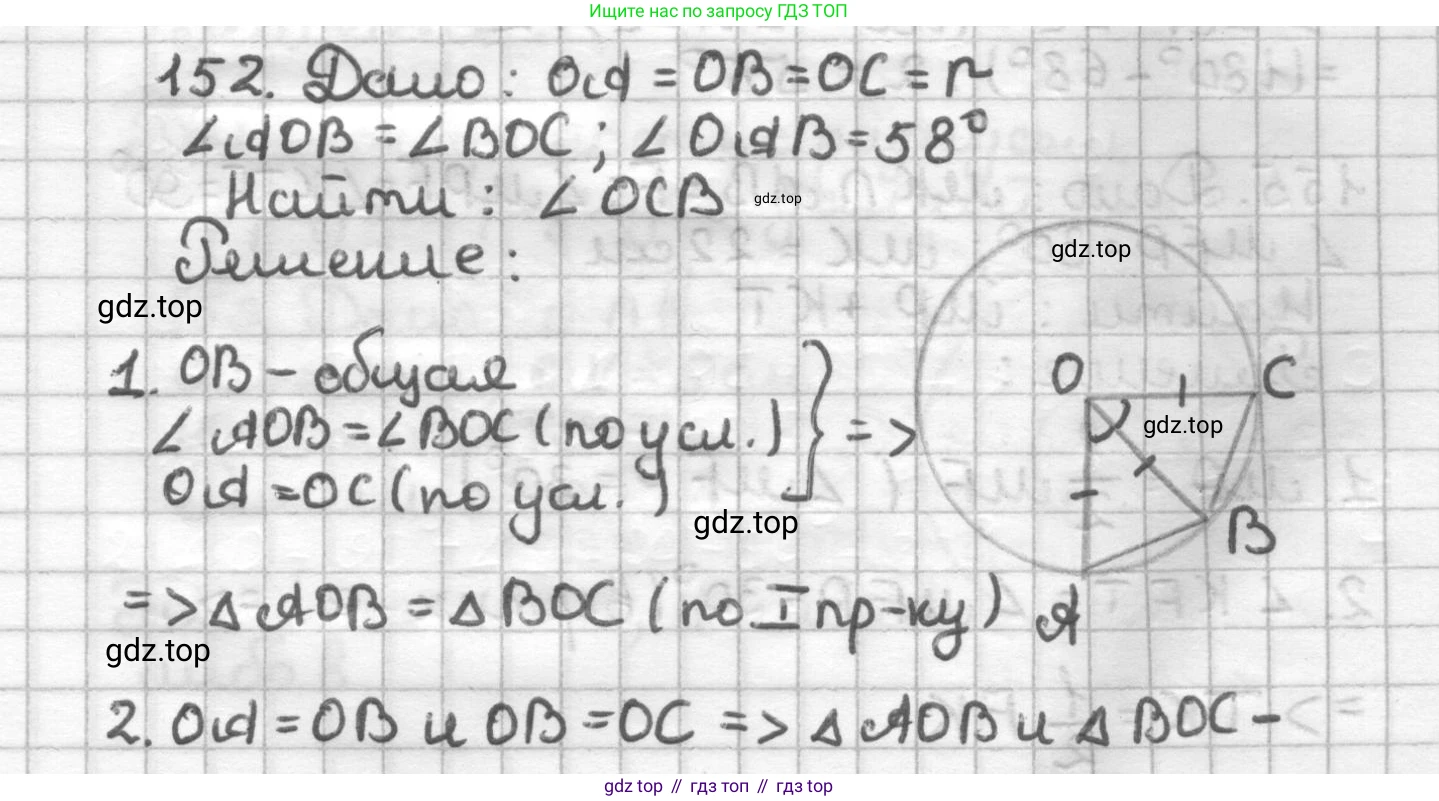 Ищите нас по запросу ГДЗ ТОП
152. Дано: OA = OB = OC = r
∠AOB = ∠BOC; ∠OAB = 58°
Найти: ∠OCB gdz.top
Решение:
gdz.top
gdz.top
1. OB – общая
∠AOB = ∠BOC (по усл.) } =>
OA = OC (по усл.)
O C
gdz.top
gdz.top
B
=> △AOB = △BOC (по I пр-ку) A
gdz.top
2. OA = OB и OB = OC => △AOB и △BOC –
gdz top // гдз топ // гдз top